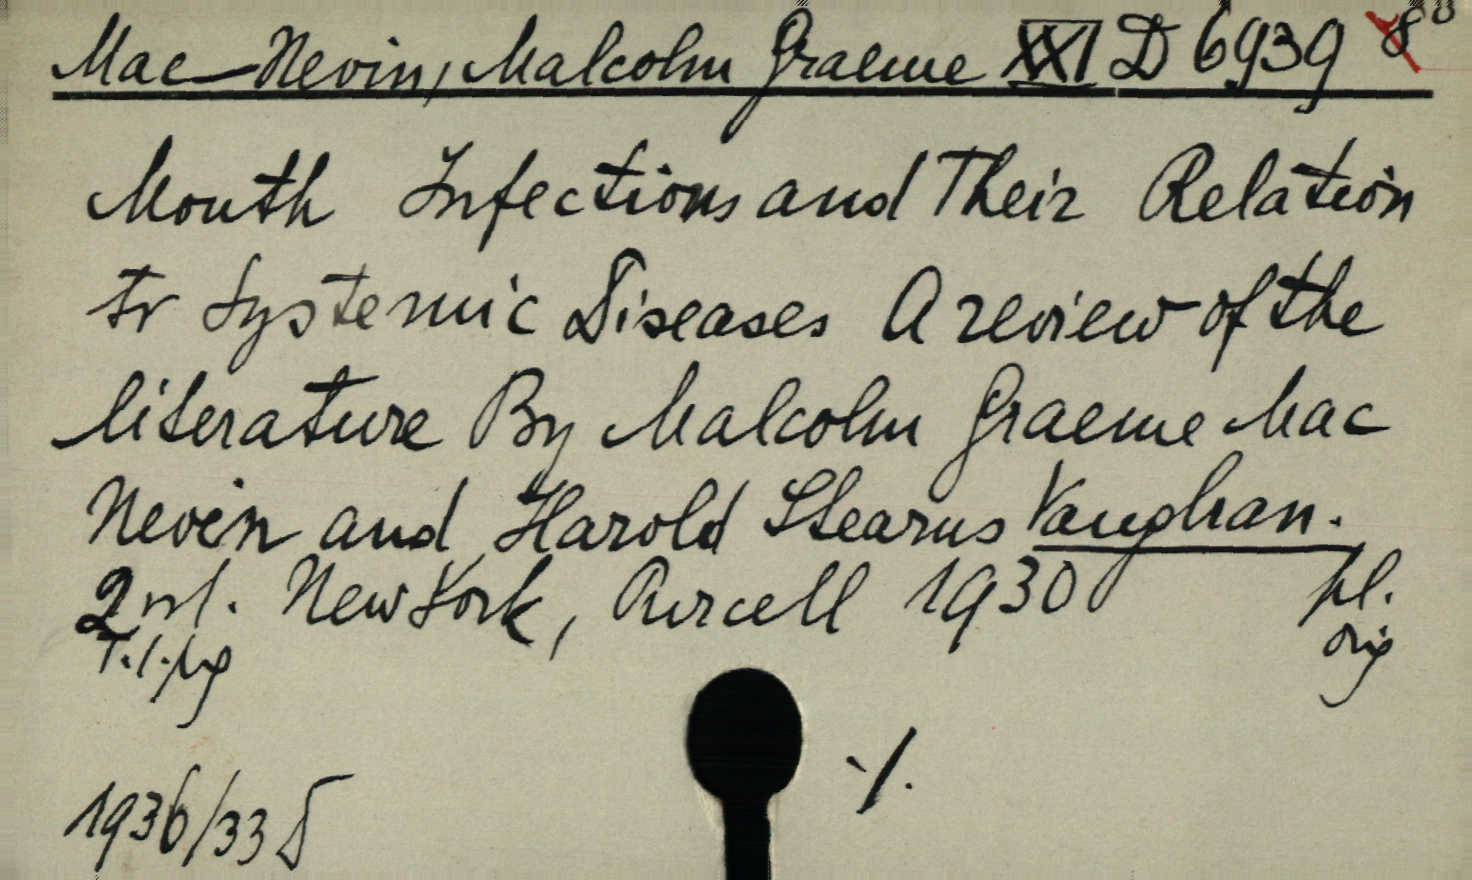 Mac-Nevin, Malcolm Graeme XXI D 6939 8°
Mouth Infections and Their Relation
to Systemic Diseases A review of the
literature By Malcolm Graeme Mac
Nevin and Harold Stearns Vaughan.
2 vol. New York, Purcell 1930 pl.
T.1. orig
1936/33